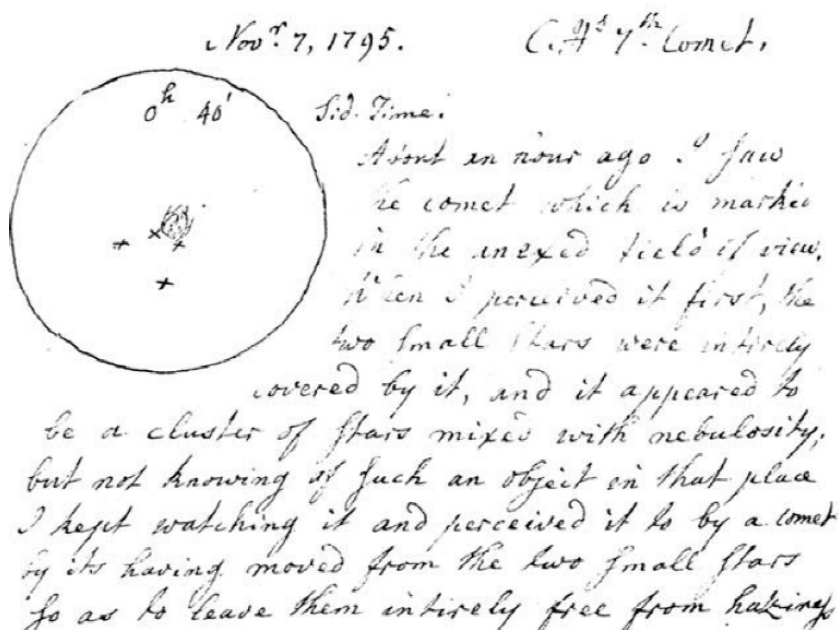 Novr. 7, 1795. C. Hs 7th. Comet.
0h 40' Sid. Time.
About an hour ago I saw
the comet which is marked
in the anexed field of view.
When I perceived it first, the
two small stars were intirely
covered by it, and it appeared to
be a cluster of stars mixed with nebulosity,
but not knowing of such an object in that place
I kept watching it and perceived it to by a comet
by its having moved from the two small stars
so as to leave them intirely free from haziness